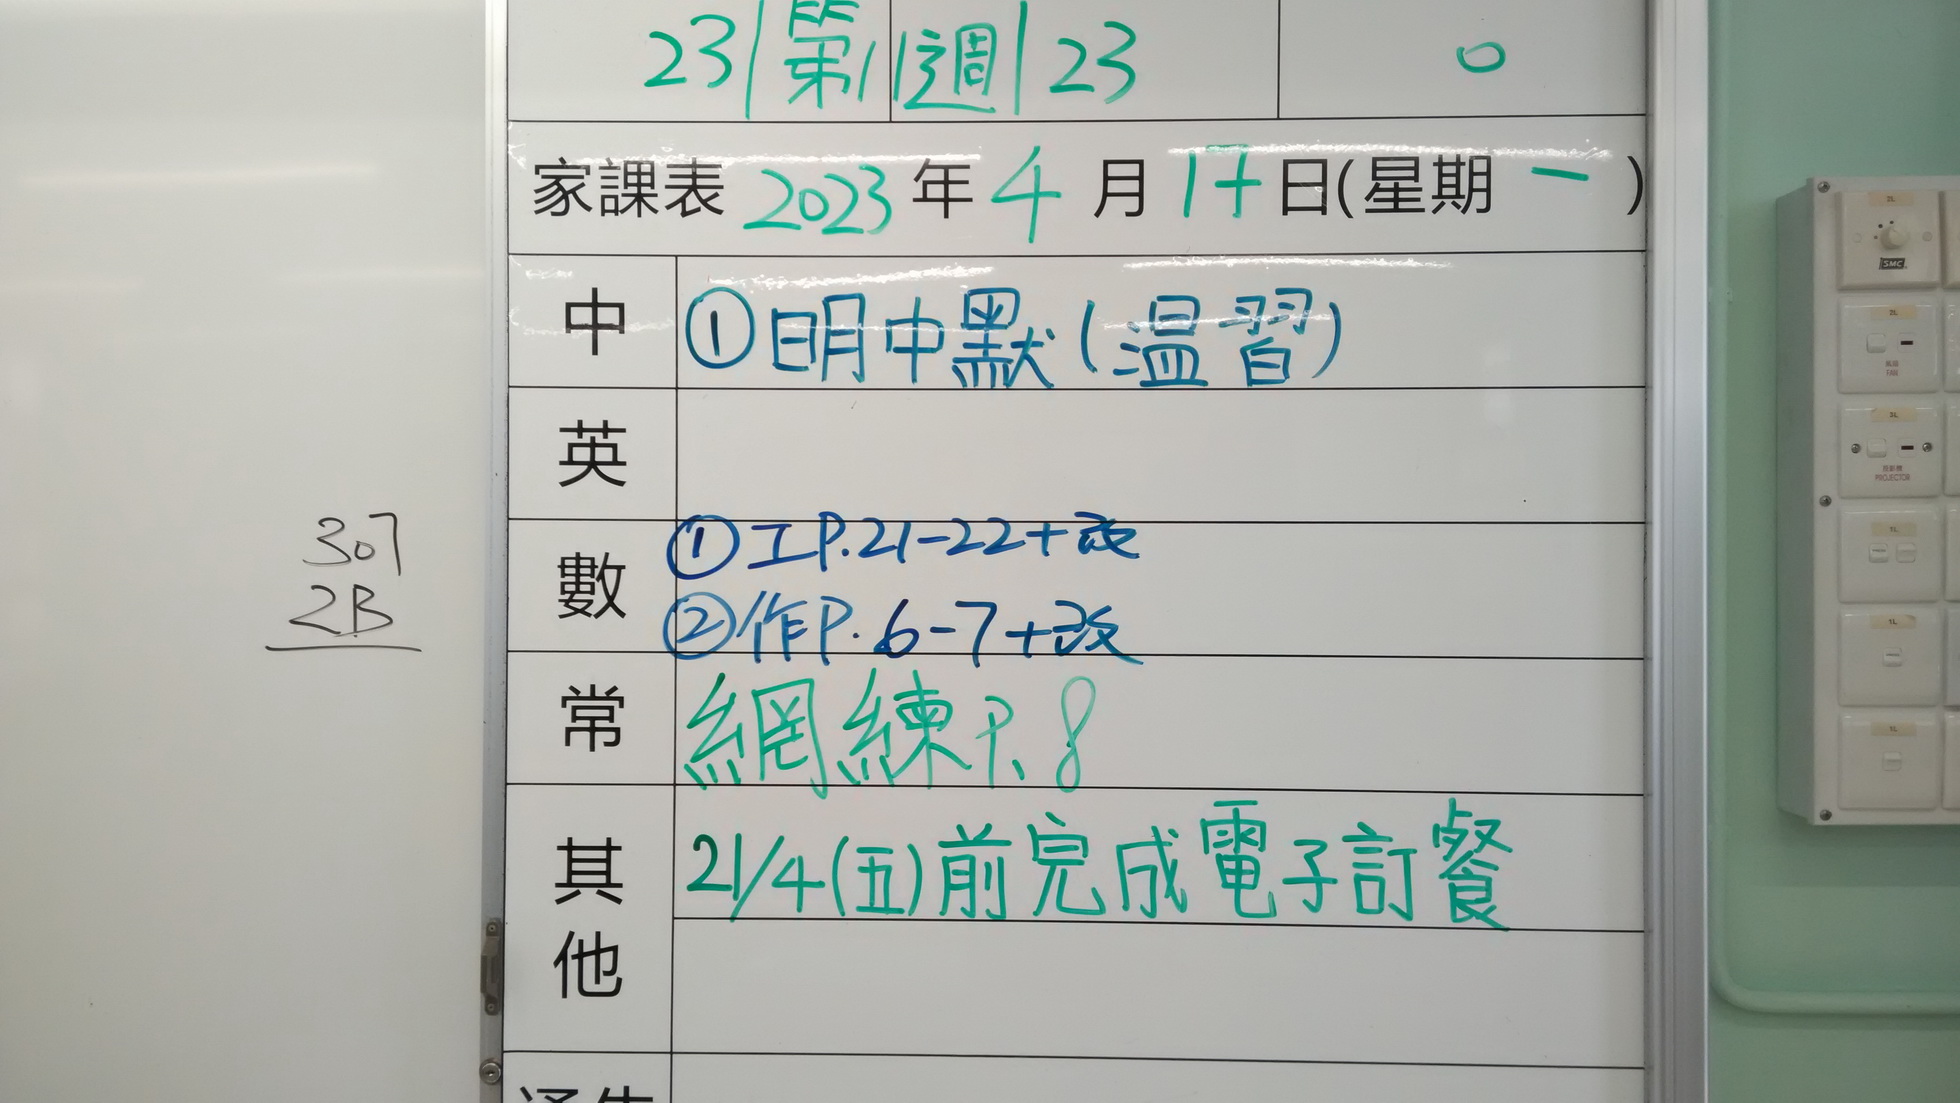 23 第11週 23 0
家課表 2023 年 4 月 17 日(星期 一 )
中 ①明中默(温習)
英
數 ①工P.21-22+改
②作P.6-7+改
常 網練P.8
其他 21/4(五)前完成電子訂餐
307
2B
SMC
2L
FAN
3L
PROJECTOR
1L
1L
1L